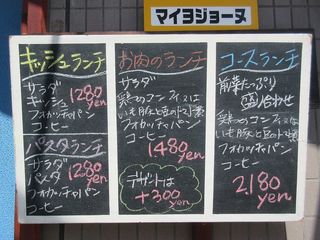 マイヨジョーヌ
キッシュランチ
サラダ
キッシュ
フォカッチャパン
コーヒー
1280
yen
パスタランチ
サラダ
パスタ
フォカッチャパン
コーヒー
1280
yen
お肉のランチ
サラダ
鶏のコンフィ又は
いも豚と豆のトマト煮
フォカッチャパン
コーヒー
1480
yen
デザートは
+300
yen
コースランチ
前菜たっぷり
盛り合わせ
鶏のコンフィ又は
いも豚と豆のトマト煮
フォカッチャパン
コーヒー
2,180
yen